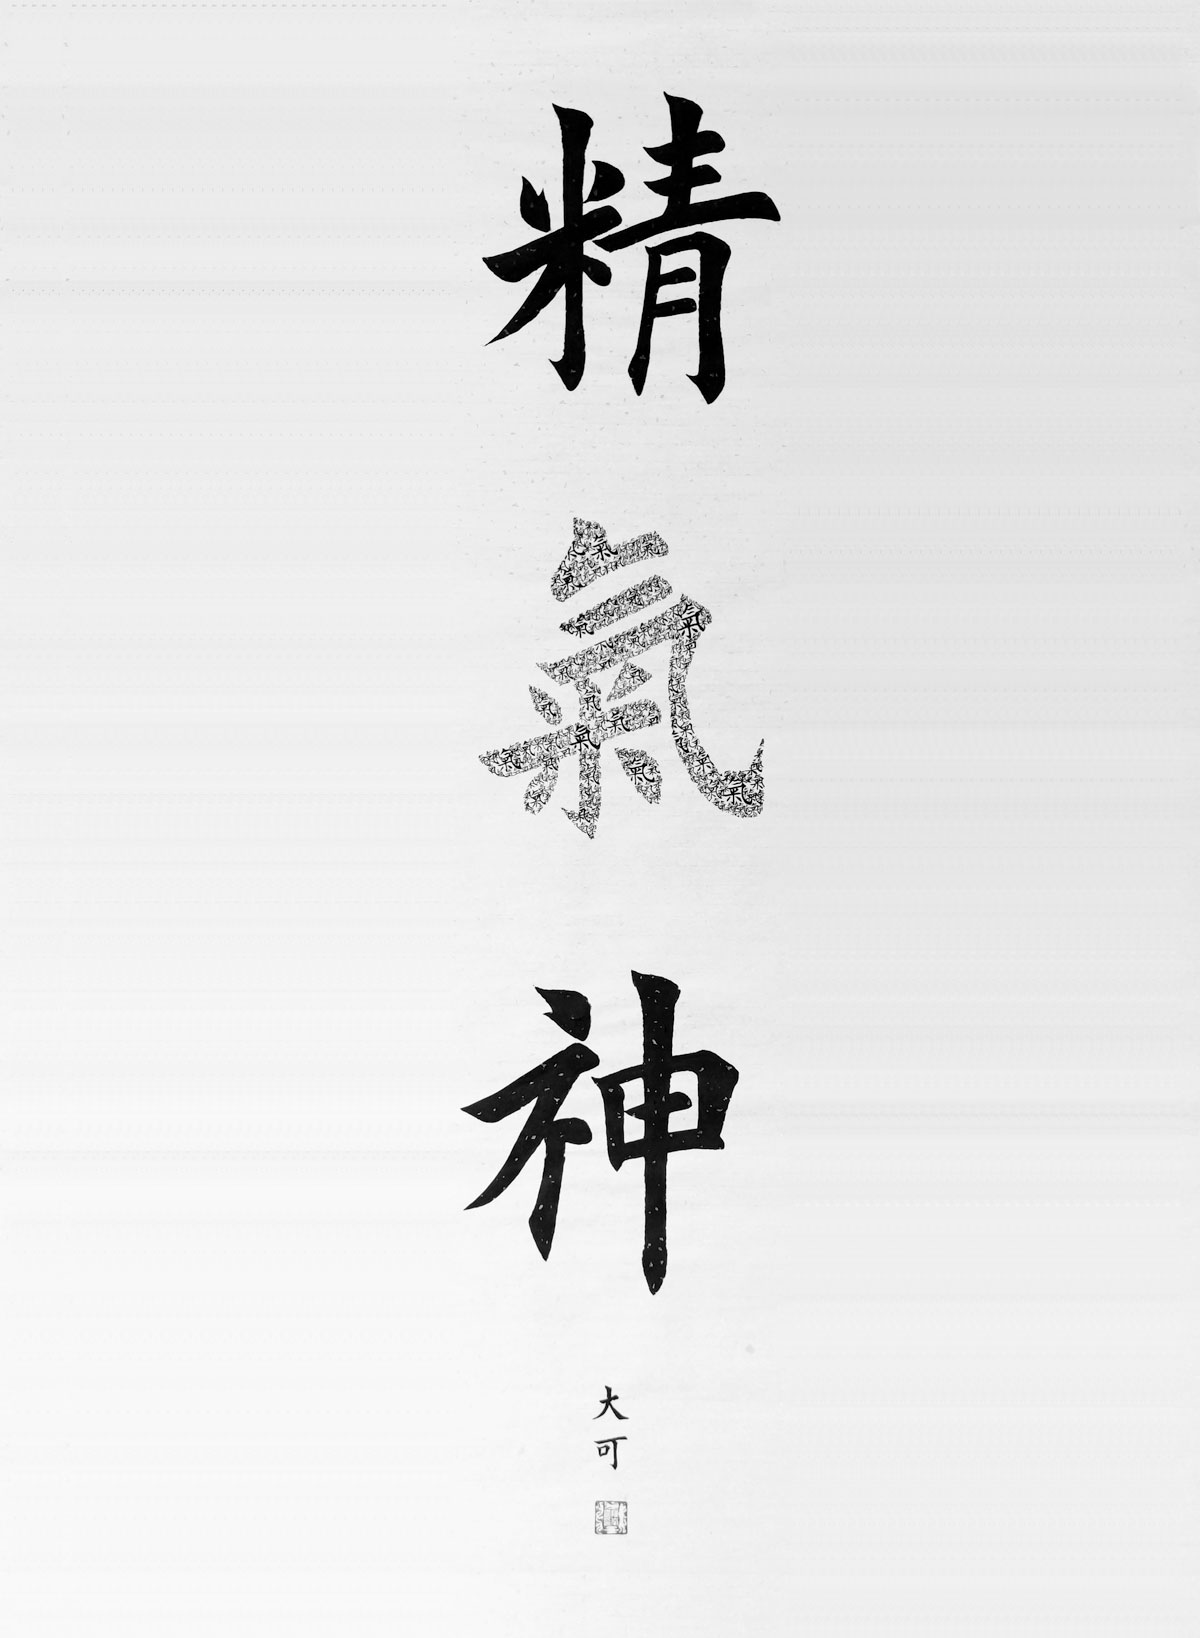 精
氣
神
大
可